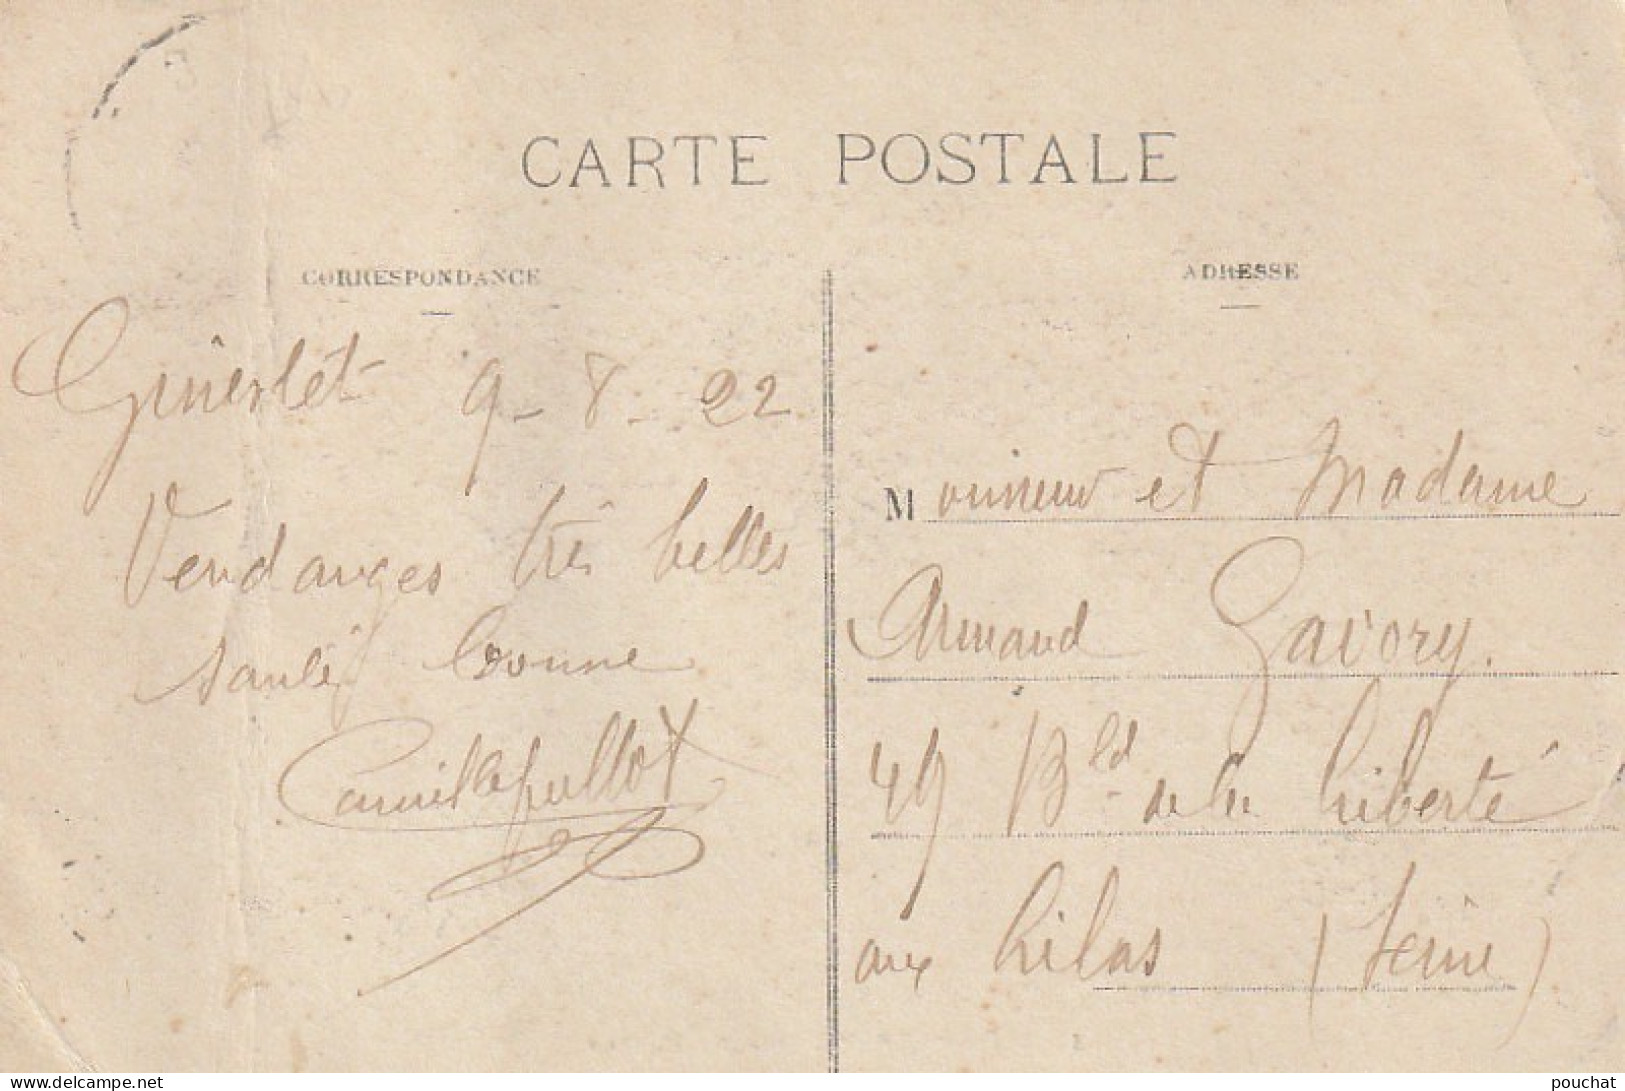 CARTE POSTALE
CORRESPONDANCE
ADRESSE
Ginestet 9-8-22
Vendanges très belles
santé bonne
Camille
Monsieur et Madame
Armand Gavory.
49 Bld de la Liberté
aux Lilas (Seine)
www.delcampe.net
pouchat